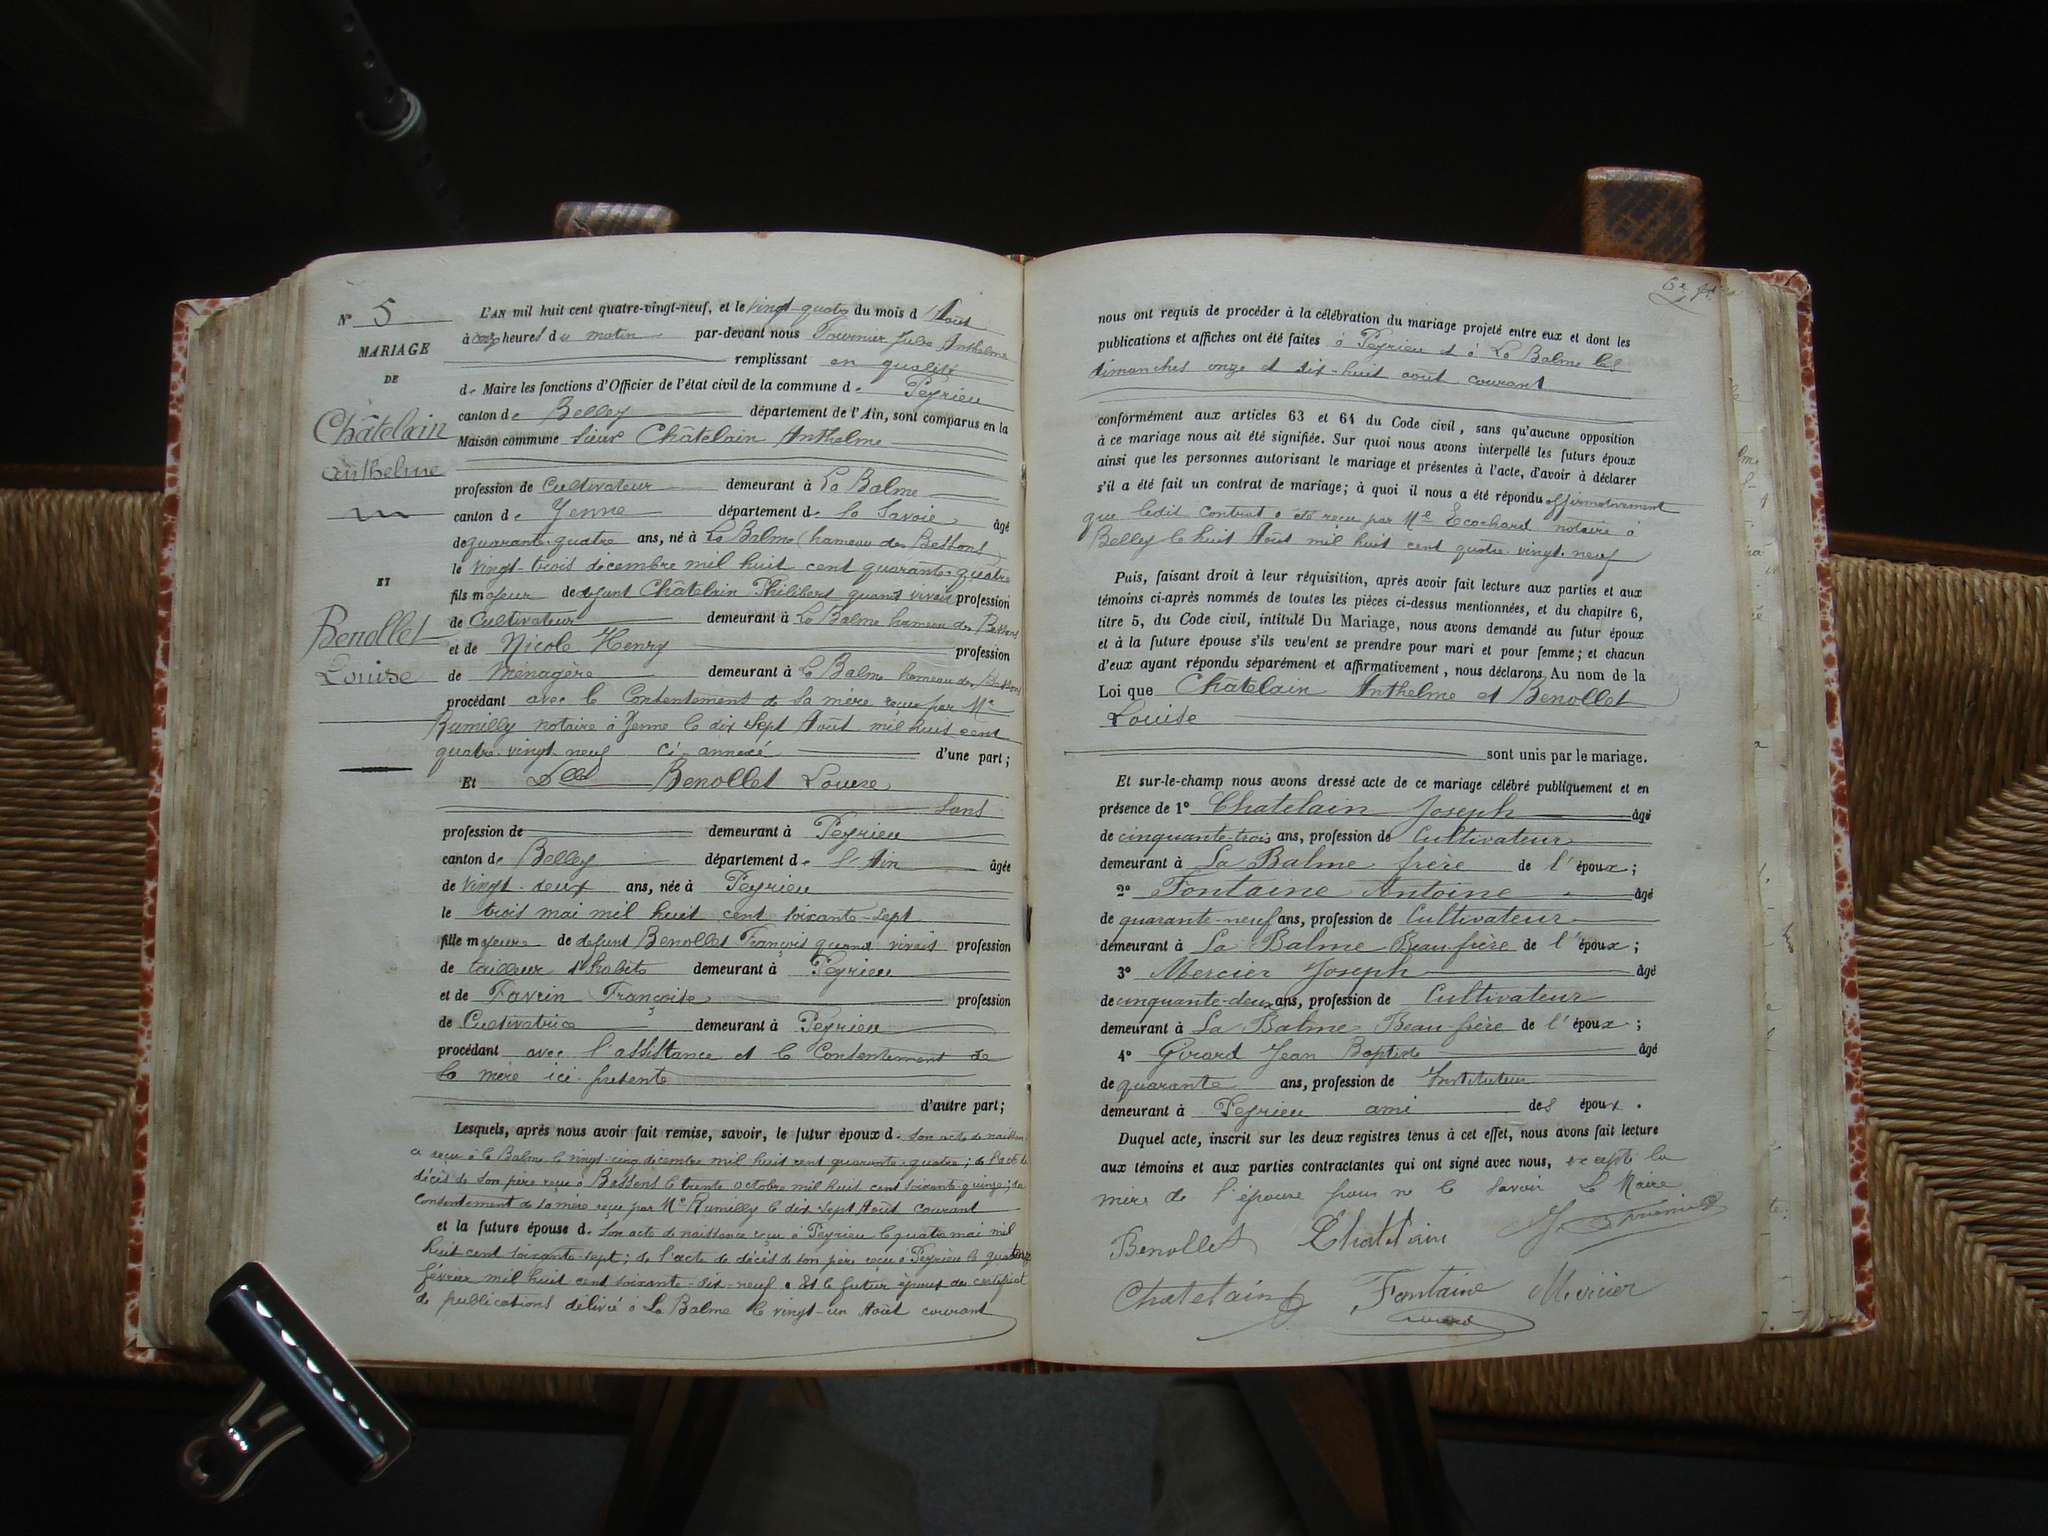 N° 5
MARIAGE
DE
Châtelain
Anthelme
ET
Benollet
Louise
L'AN mil huit cent quatre-vingt-neuf, et le vingt-quatre du mois d'Août
à onze heures du matin par-devant nous Fournier Jules Anthelme
remplissant en qualité
de Maire les fonctions d'Officier de l'état civil de la commune de Peyrieu
canton de Belley département de l'Ain, sont comparus en la
Maison commune sieur Châtelain Anthelme
profession de Cultivateur demeurant à La Balme
canton de Yenne département de la Savoie âgé
de quarante-quatre ans, né à La Balme (hameau des Bessons)
le vingt-trois décembre mil huit cent quarante-quatre
fils majeur de defunt Châtelain Philibert quand vivais profession
de Cultivateur demeurant à La Balme hameau des Bessons
et de Nicole Henry profession
de Ménagère demeurant à La Balme hameau des Bessons
procédant avec le Consentement de sa mère reçu par Me
Rumilly notaire à Yenne le dix sept Août mil huit cent
quatre-vingt-neuf ci-annexé d'une part;
Et Dlle Benollet Louise
sans
profession de demeurant à Peyrieu
canton de Belley département de l'Ain âgée
de vingt-deux ans, née à Peyrieu
le trois mai mil huit cent soixante-sept
fille majeure de defunt Benollet François quand vivais profession
de tailleur d'habits demeurant à Peyrieu
et de Favrin Françoise profession
de Cultivatrice demeurant à Peyrieu
procédant avec l'assistance et le Consentement de
la mère ici présente
d'autre part;
Lesquels, après nous avoir fait remise, savoir, le futur époux d. son acte de naissan
ce reçu à la Balme le vingt-cinq décembre mil huit cent quarante-quatre; de l'acte de
décès de son père reçu à Bessons le trente octobre mil huit cent soixante-quinze; du
consentement de sa mère reçu par Me Rumilly le dix-sept Août courant
et la future épouse d. son acte de naissance reçu à Peyrieu le quatre mai mil
huit cent soixante-sept; de l'acte de décès de son père reçu à Peyrieu le quatorze
février mil huit cent soixante-dix-neuf. Et le futur époux du certificat
de publications délivré à La Balme le vingt-un Août courant
nous ont requis de procéder à la célébration du mariage projeté entre eux et dont les
publications et affiches ont été faites à Peyrieu et à La Balme les
dimanches onze et dix-huit août courant
conformément aux articles 63 et 64 du Code civil, sans qu'aucune opposition
à ce mariage nous ait été signifiée. Sur quoi nous avons interpellé les futurs époux
ainsi que les personnes autorisant le mariage et présentes à l'acte, d'avoir à déclarer
s'il a été fait un contrat de mariage; à quoi il nous a été répondu affirmativement
que ledit Contrat a été reçu par Me Ecochard notaire à
Belley le huit Août mil huit cent quatre-vingt-neuf
Puis, faisant droit à leur réquisition, après avoir fait lecture aux parties et aux
témoins ci-après nommés de toutes les pièces ci-dessus mentionnées, et du chapitre 6,
titre 5, du Code civil, intitulé Du Mariage, nous avons demandé au futur époux
et à la future épouse s'ils veulent se prendre pour mari et pour femme; et chacun
d'eux ayant répondu séparément et affirmativement, nous déclarons Au nom de la
Loi que Châtelain Anthelme et Benollet
Louise
sont unis par le mariage.
Et sur-le-champ nous avons dressé acte de ce mariage célébré publiquement et en
présence de 1° Chatelain Joseph âgé
de cinquante-trois ans, profession de Cultivateur
demeurant à La Balme frère de l'époux;
2° Fontaine Antoine âgé
de quarante-neuf ans, profession de Cultivateur
demeurant à La Balme Beau-frère de l'époux;
3° Mercier Joseph âgé
de cinquante-deux ans, profession de Cultivateur
demeurant à La Balme Beau-frère de l'époux;
4° Girard Jean Baptiste âgé
de quarante ans, profession de Instituteur
demeurant à Peyrieu ami des époux.
Duquel acte, inscrit sur les deux registres tenus à cet effet, nous avons fait lecture
aux témoins et aux parties contractantes qui ont signé avec nous, excepté la
mère de l'épouse pour ne le savoir Le Maire
Benollet Chatelain J. Fournier
Chatelain Fontaine Mercier
Girard